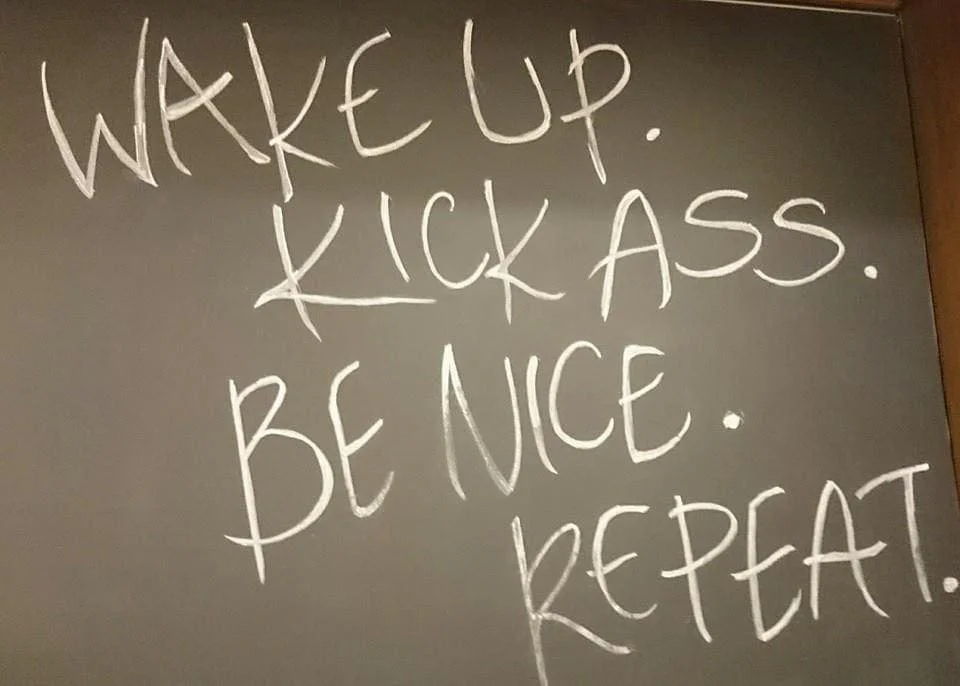 WAKE UP.
KICK ASS.
BE NICE.
REPEAT.